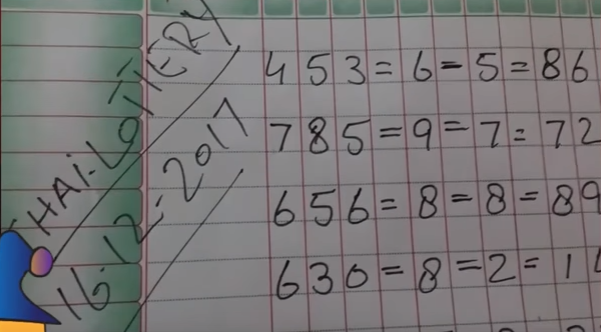 THAI-LOTTERY
16-12-2017
453=6=5=86
785=9=7=72
656=8=8=89
630=8=2=1